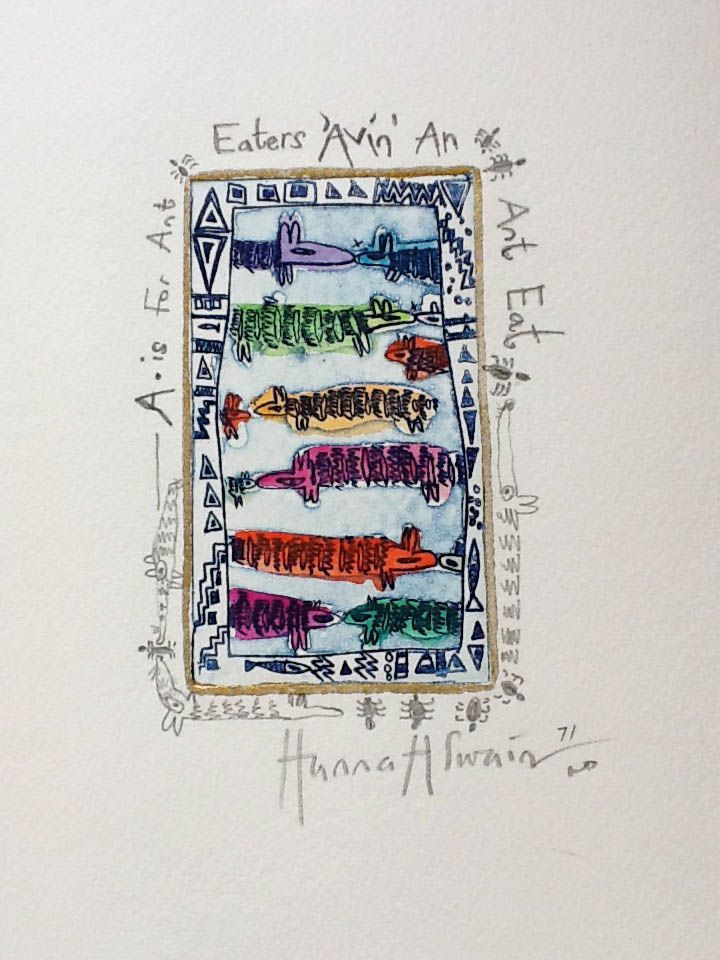 A. is For Ant
Eaters 'Avin' An
Ant Eat
HannaH Swain 71